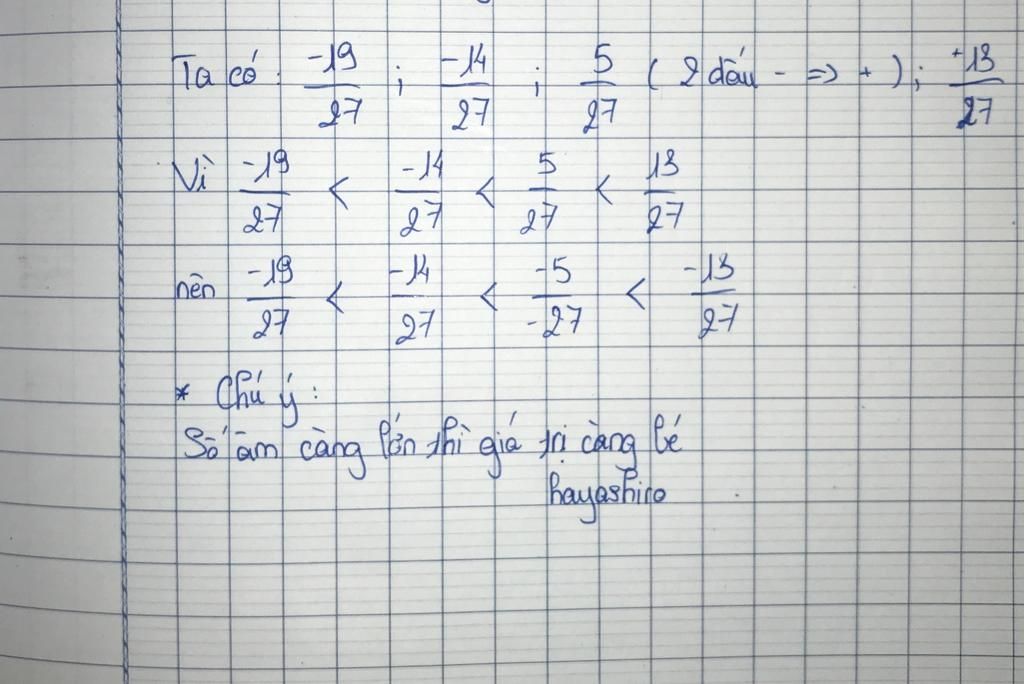 Ta có: -19/27 ; -14/27 ; 5/27 ( 2 dấu - => + ) ; +13/27
Vì -19/27 < -14/27 < 5/27 < 13/27
nên -19/27 < -14/27 < -5/-27 < -13/27
* Chú ý:
Số âm càng lớn thì giá trị càng bé
hayashiro